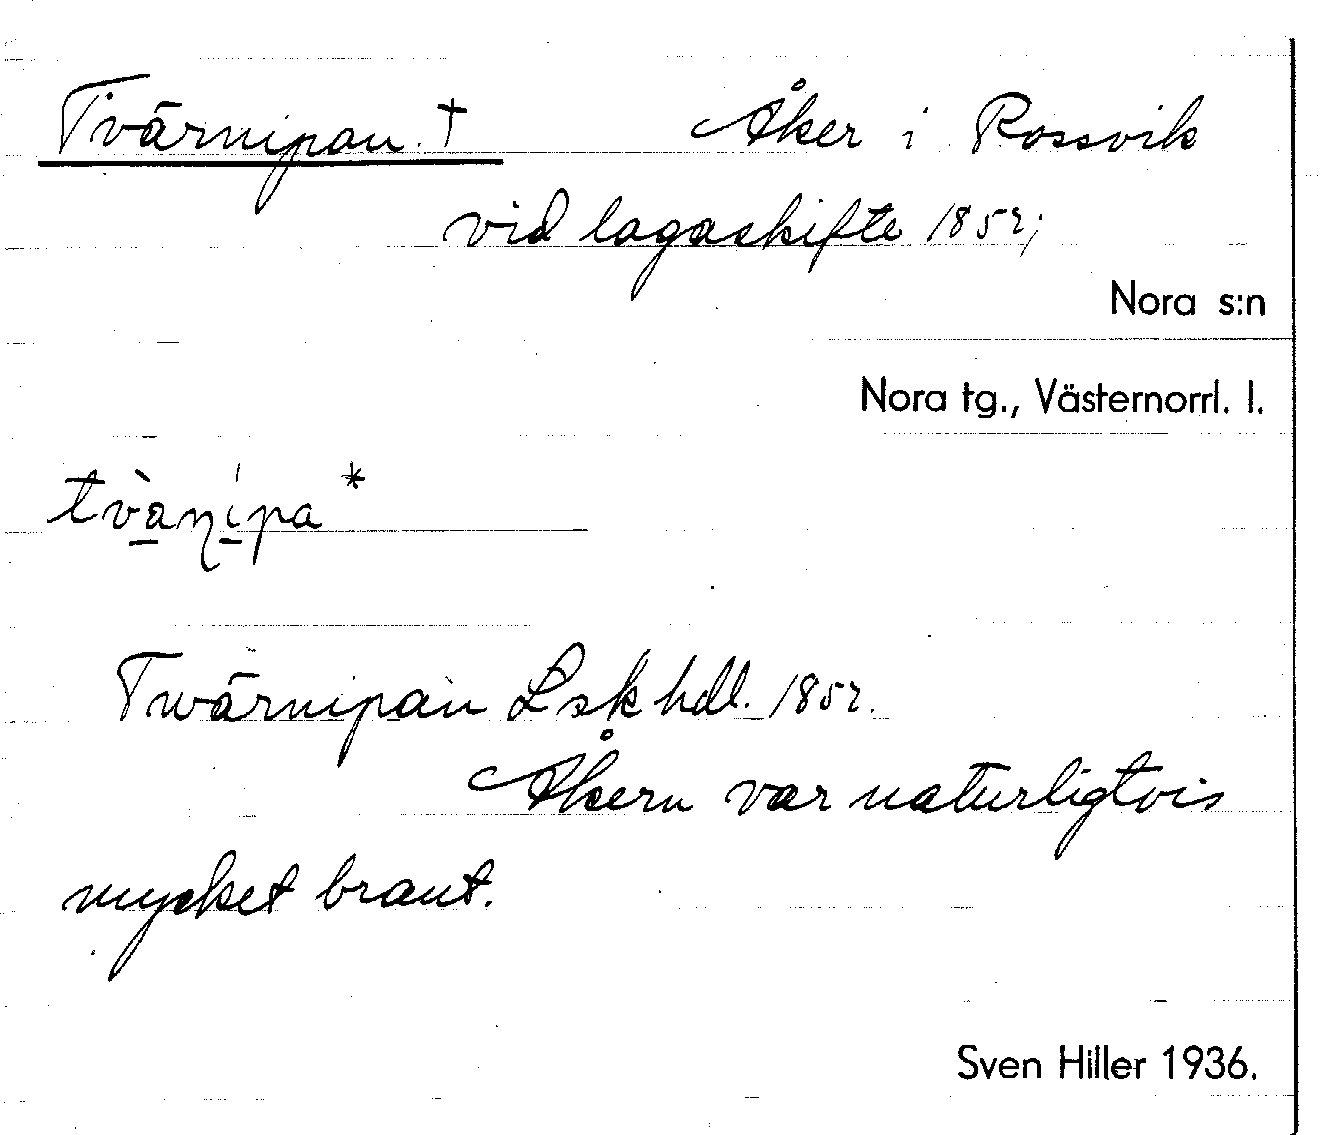 Tvärnipan † Åker i Rossvik
vid lagaskifte 1852;
Nora s:n
Nora tg., Västernorrl. l.
tvà̱ṇi̱pa *
Twärnipan Lsk hdl. 1852.
Åkern var naturligtvis
mycket brant.
Sven Hiller 1936.